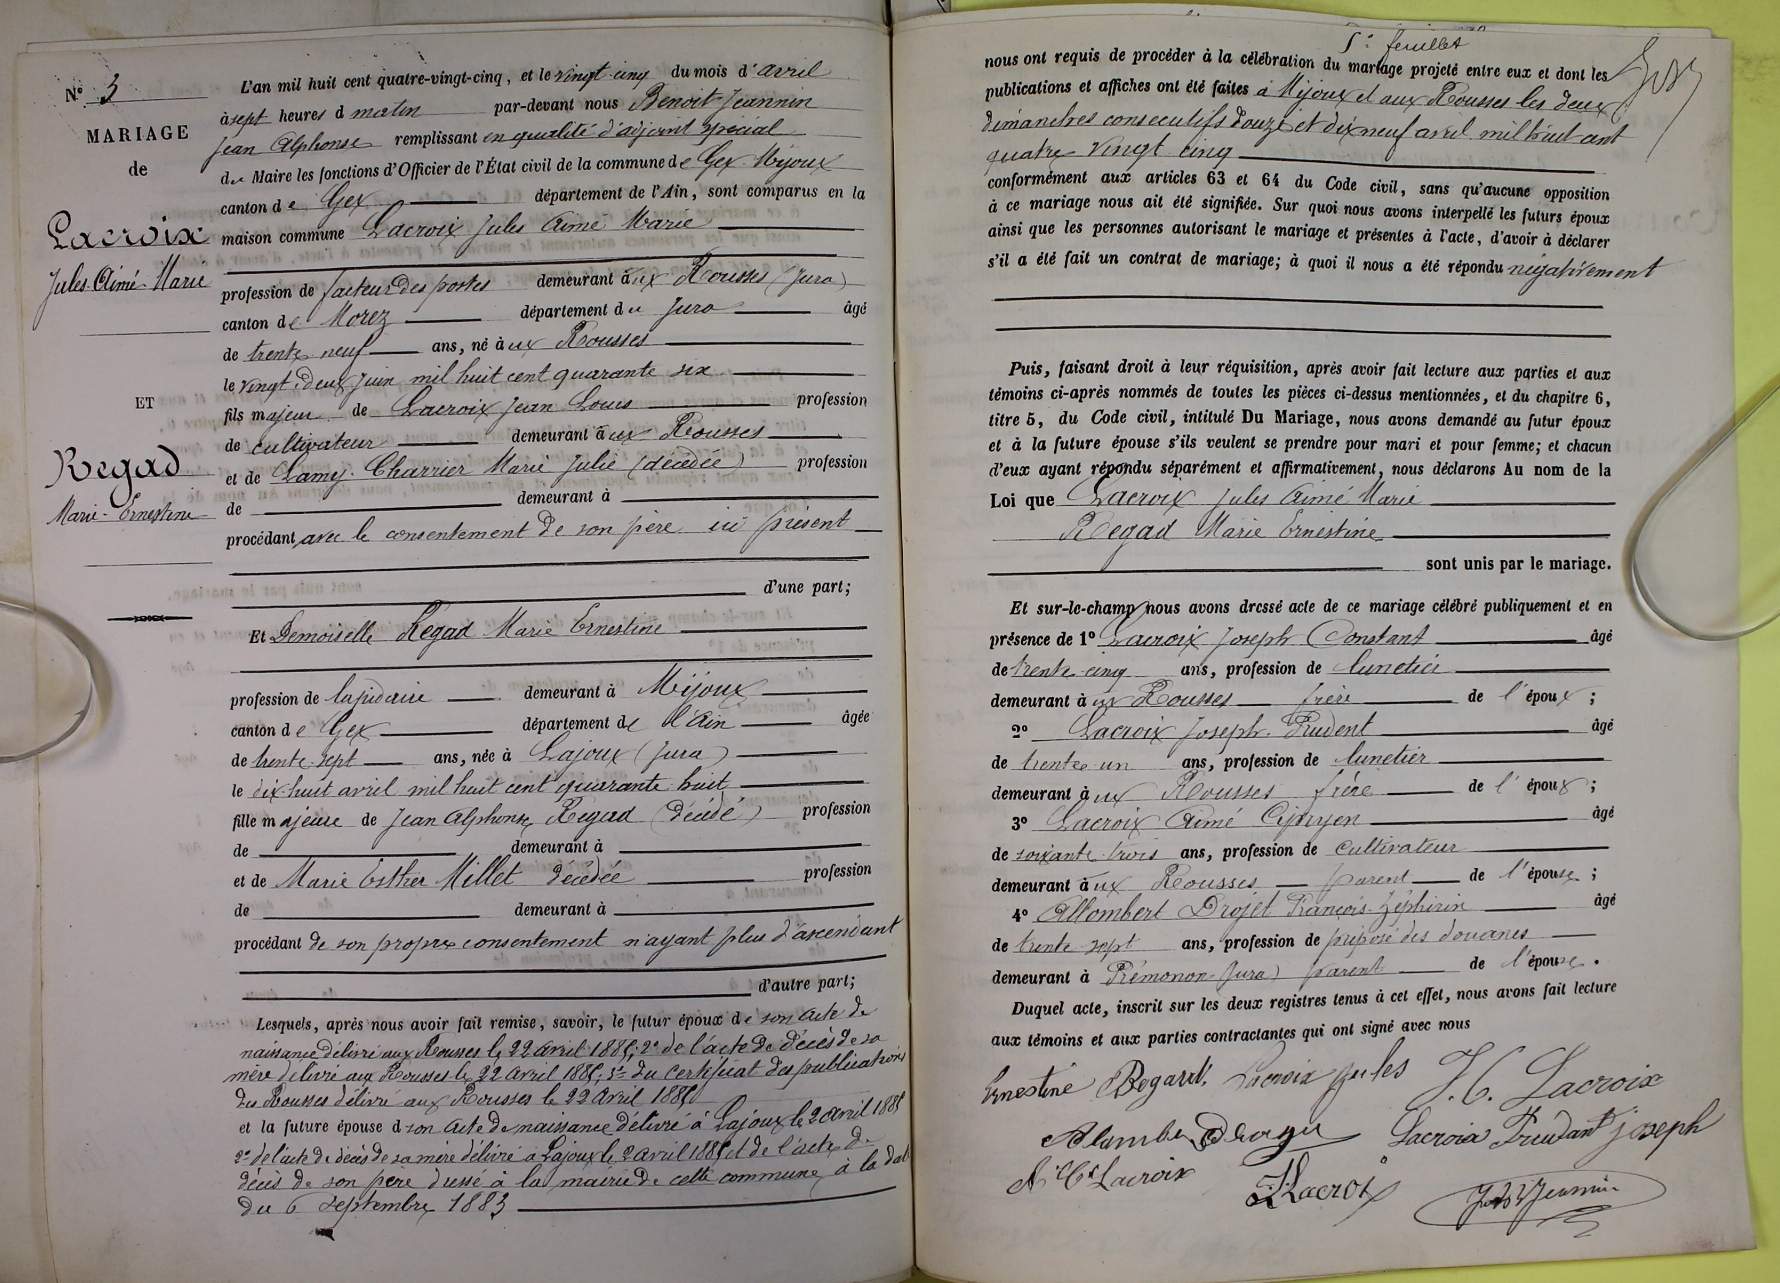 N° 3
MARIAGE
de
Lacroix
Jules Aimé Marie
ET
Regad
Marie-Ernestine
L'an mil huit cent quatre-vingt-cinq, et le vingt-cinq du mois d'avril
à sept heures d matin par-devant nous Benoit-Jeannin
Jean Alphonse remplissant en qualité d'adjoint spécial
de Maire les fonctions d'Officier de l'État civil de la commune de Gex-Mijoux
canton de Gex département de l'Ain, sont comparus en la
maison commune Lacroix Jules Aimé Marie
profession de facteur des postes demeurant aux Rousses (Jura)
canton de Morez département du Jura âgé
de trente neuf ans, né aux Rousses
le vingt-deux juin mil huit cent quarante six
fils majeur de Lacroix Jean Louis profession
de cultivateur demeurant aux Rousses
et de Lamy-Charrier Marie Julie (décédée) profession
de demeurant à
procédant avec le consentement de son père ici présent
d'une part;
Et Demoiselle Regad Marie Ernestine
profession de lapidaire demeurant à Mijoux
canton de Gex département de l'Ain âgée
de trente-sept ans, née à Lajoux (Jura)
le dix-huit avril mil huit cent quarante huit
fille majeure de Jean Alphonse Regad (décédé) profession
de demeurant à
et de Marie Esther Millet décédée profession
de demeurant à
procédant de son propre consentement n'ayant plus d'ascendant
d'autre part;
Lesquels, après nous avoir fait remise, savoir, le futur époux de son acte de
naissance délivré aux Rousses le 22 avril 1885; 2° de l'acte de décès de sa
mère délivré aux Rousses le 22 avril 1885; 3° du certificat des publications
des Rousses délivré aux Rousses le 22 avril 1885
et la future épouse d son acte de naissance délivré à Lajoux le 2 avril 1885
2° de l'acte de décès de sa mère délivré à Lajoux le 2 avril 1885 et de l'acte de
décès de son père dressé à la mairie de cette commune à la date
du 6 septembre 1883
5e feuillet
nous ont requis de procéder à la célébration du mariage projeté entre eux et dont les
publications et affiches ont été faites à Mijoux et aux Rousses les deux
dimanches consecutifs douze et dix neuf avril mil huit cent
quatre vingt cinq
conformément aux articles 63 et 64 du Code civil, sans qu'aucune opposition
à ce mariage nous ait été signifiée. Sur quoi nous avons interpellé les futurs époux
ainsi que les personnes autorisant le mariage et présentes à l'acte, d'avoir à déclarer
s'il a été fait un contrat de mariage; à quoi il nous a été répondu négativement
Puis, faisant droit à leur réquisition, après avoir fait lecture aux parties et aux
témoins ci-après nommés de toutes les pièces ci-dessus mentionnées, et du chapitre 6,
titre 5, du Code civil, intitulé Du Mariage, nous avons demandé au futur époux
et à la future épouse s'ils veulent se prendre pour mari et pour femme; et chacun
d'eux ayant répondu séparément et affirmativement, nous déclarons Au nom de la
Loi que Lacroix Jules Aimé Marie
Regad Marie Ernestine
sont unis par le mariage.
Et sur-le-champ nous avons dressé acte de ce mariage célébré publiquement et en
présence de 1° Lacroix Joseph Constant âgé
de trente-cinq ans, profession de lunetier
demeurant aux Rousses frère de l'époux;
2° Lacroix Joseph-Prudent âgé
de trente-un ans, profession de lunetier
demeurant aux Rousses frère de l'époux;
3° Lacroix Aimé Ciprien âgé
de soixante-trois ans, profession de cultivateur
demeurant aux Rousses parent de l'épouse;
4° Allombert Drojet François-Zéphirin âgé
de trente-sept ans, profession de préposé des douanes
demeurant à Prémonon (Jura) parent de l'épouse.
Duquel acte, inscrit sur les deux registres tenus à cet effet, nous avons fait lecture
aux témoins et aux parties contractantes qui ont signé avec nous
Ernestine Regard. Lacroix jules J. C. Lacroix
Lacroix Prudant joseph
Lacroix Lacroix Jeannin